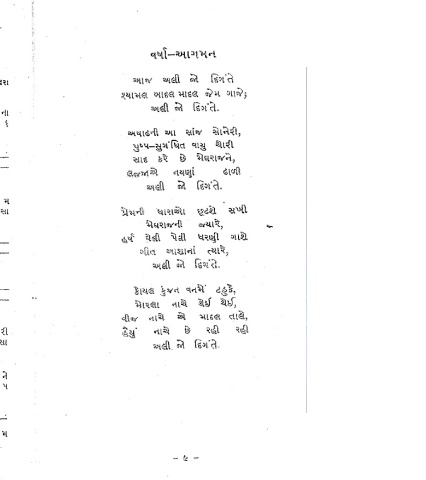 વર્ષા–આગમન
આજ અલી જો દિગંતે
શ્યામલ બાદલ માદલ જેમ ગાજે;
અલી જો દિગંતે.
અષાઢની આ સાંજ સોનેરી,
પુષ્પ–સુગંધિત વાયુ થારી
સાદ કરે છે મેઘરાજને,
લજ્જાએ નયણાં ઢાળી
અલી જો દિગંતે.
પ્રેમની ધારાઓ છૂટશે સખી
મેઘરાજની જ્યારે,
હર્ષ ઘેલી પેલી ધરણી ગાશે
ગીત આશાનાં ત્યારે,
અલી જો દિગંતે.
કોયલ કુંજન વનમેં ટહુકે,
મોરલા નાચે થેઈ થેઈ,
વીજ નાચે એ માદલ તાલે,
હૈયું નાચે છે રહી રહી
અલી જો દિગંતે.
– ૯ –